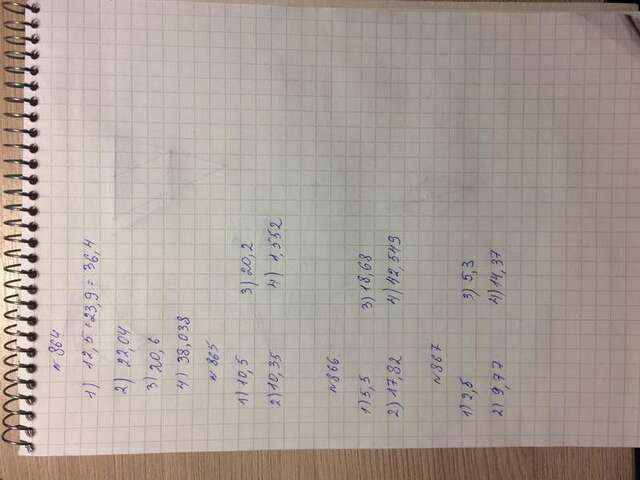 №864
1) 12,5+23,9=36,4
2) 22,04
3) 20,6
4) 38,038
№865
1) 10,5 3) 20,2
2) 10,35 4) 1,552
№866
1) 5,5 3) 18,68
2) 17,82 4) 42,549
№867
1) 2,5 3) 5,3
2) 9,77 4) 14,37